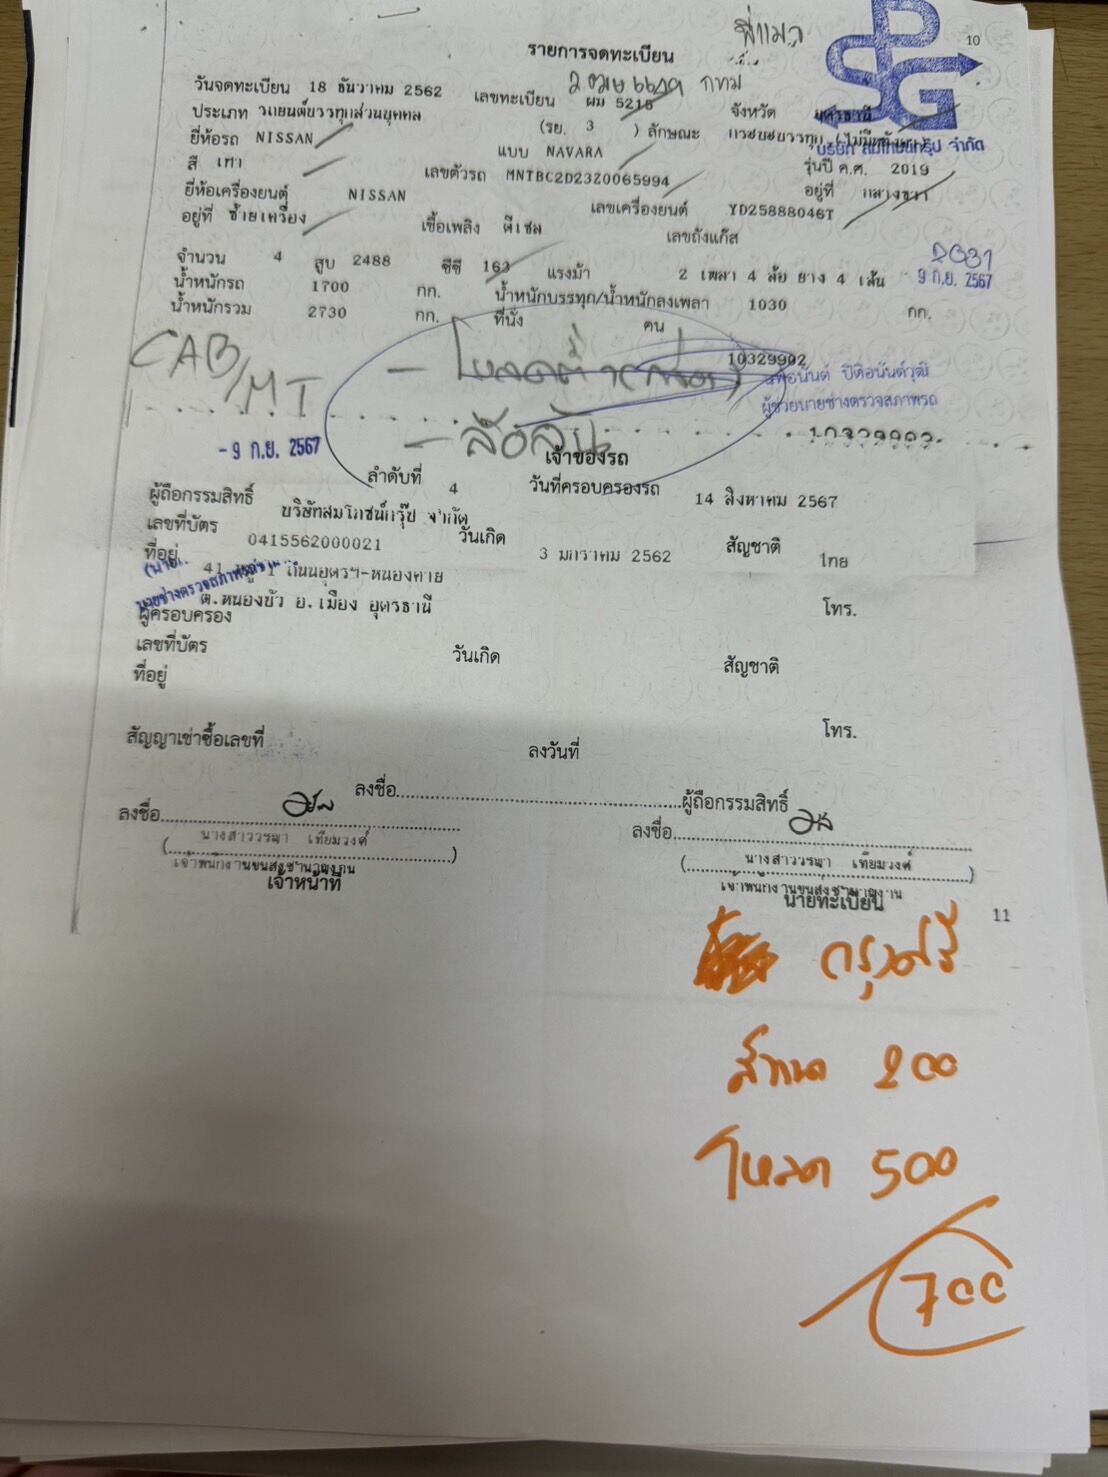 10
รายการจดทะเบียน
วันจดทะเบียน 18 ธันวาคม 2562 เลขทะเบียน ผม 5215 จังหวัด อุดรธานี
กทม
ประเภท รถยนต์บรรทุกส่วนบุคคล (รย. 3 ) ลักษณะ กระบะบรรทุก (ไม่มีหลังคา)
SPG
บริษัท สมโภชน์กรุ๊ป จำกัด
ยี่ห้อรถ NISSAN แบบ NAVARA รุ่นปี ค.ศ. 2019
สี เทา เลขตัวรถ MNTBC2D23Z0065994 อยู่ที่ กลางขวา
ยี่ห้อเครื่องยนต์ NISSAN เลขเครื่องยนต์ YD25888046T
อยู่ที่ ซ้ายเครื่อง เชื้อเพลิง ดีเซล เลขถังแก๊ส
จำนวน 4 สูบ 2488 ซีซี 163 แรงม้า 2 เพลา 4 ล้อ ยาง 4 เส้น
9 ก.ย. 2567
น้ำหนักรถ 1700 กก. น้ำหนักบรรทุก/น้ำหนักลงเพลา 1030 กก.
น้ำหนักรวม 2730 กก. ที่นั่ง คน
CAB/MT
- โหลดต่ำ
10329902
ปิติอนันต์วุฒิ
ผู้ช่วยนายช่างตรวจสภาพรถ
10329902
- 9 ก.ย. 2567
เจ้าของรถ
ลำดับที่ 4 วันที่ครอบครองรถ 14 สิงหาคม 2567
ผู้ถือกรรมสิทธิ์ บริษัทสมโภชน์กรุ๊ป จำกัด
เลขที่บัตร 0415562000021 วันเกิด 3 มกราคม 2562 สัญชาติ ไทย
ที่อยู่ 41 หมู่ 1 ถนนอุดรฯ-หนองคาย
ต.หนองบัว อ.เมือง อุดรธานี โทร.
นายช่างตรวจสภาพรถ
ผู้ครอบครอง
เลขที่บัตร วันเกิด สัญชาติ
ที่อยู่
โทร.
สัญญาเช่าซื้อเลขที่ ลงวันที่
ลงชื่อ ผู้ถือกรรมสิทธิ์
ลงชื่อ ลงชื่อ
(นางสาววรษา เทียมวงศ์) (นางสาววรษา เทียมวงศ์)
เจ้าพนักงานขนส่งชำนาญงาน เจ้าพนักงานขนส่งชำนาญงาน
เจ้าหน้าที่ นายทะเบียน
11
กรุงศรี
200
โหลด 500
700